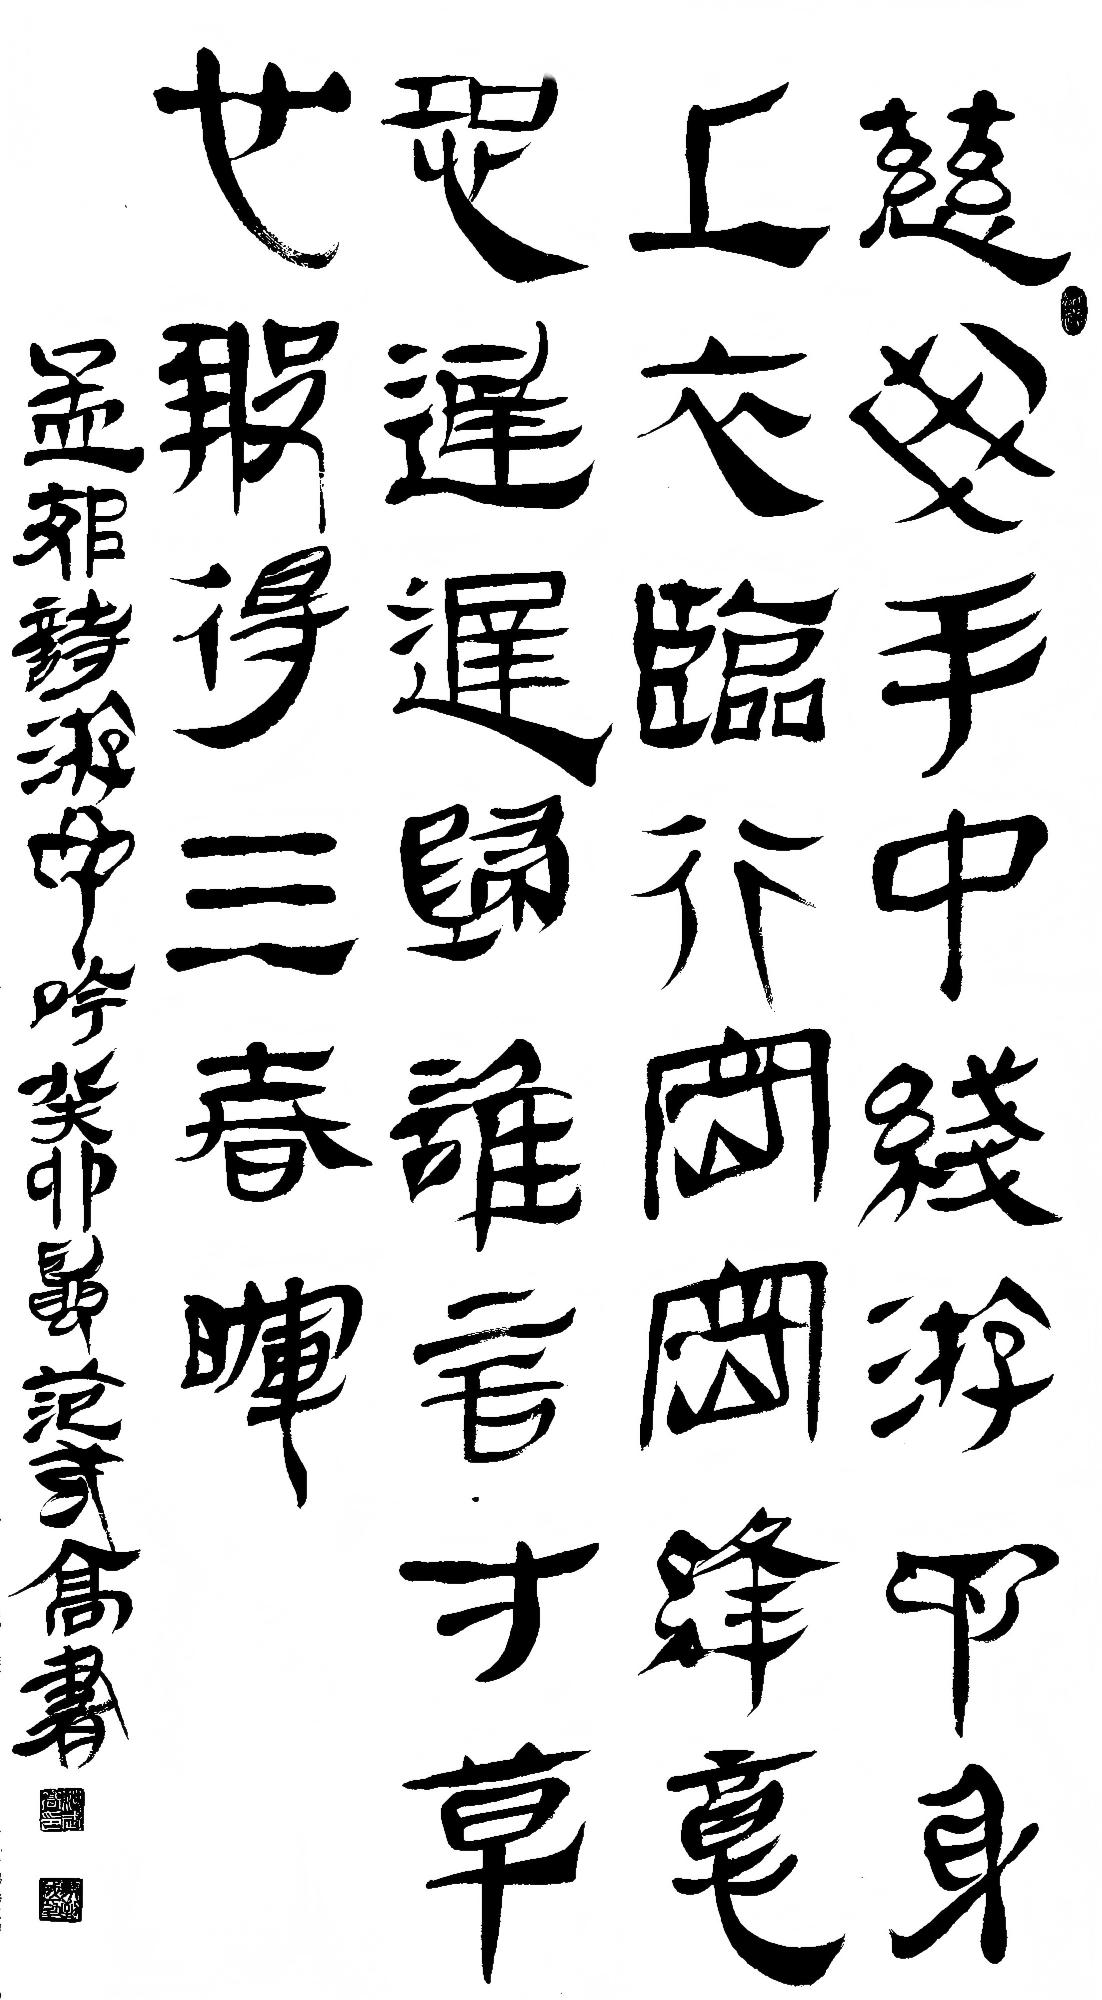 慈母手中綫游子身
上衣臨行密密縫意
恐遲遲歸誰言寸草
心報得三春暉
孟郊詩游子吟癸卯范武高書